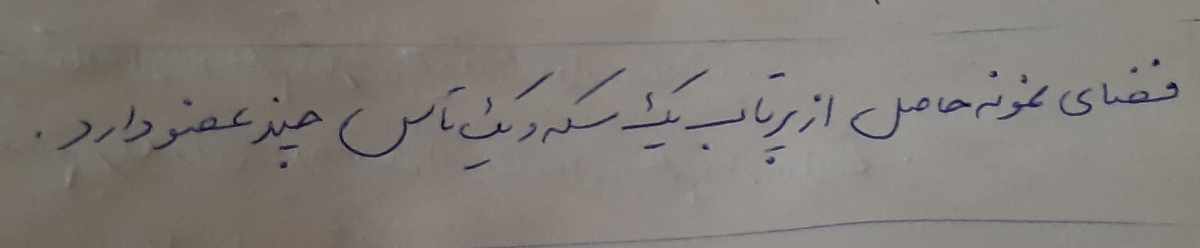 فضای نمونه حاصل از پرتاب یک سکه و یک تاس چند عضو دارد .